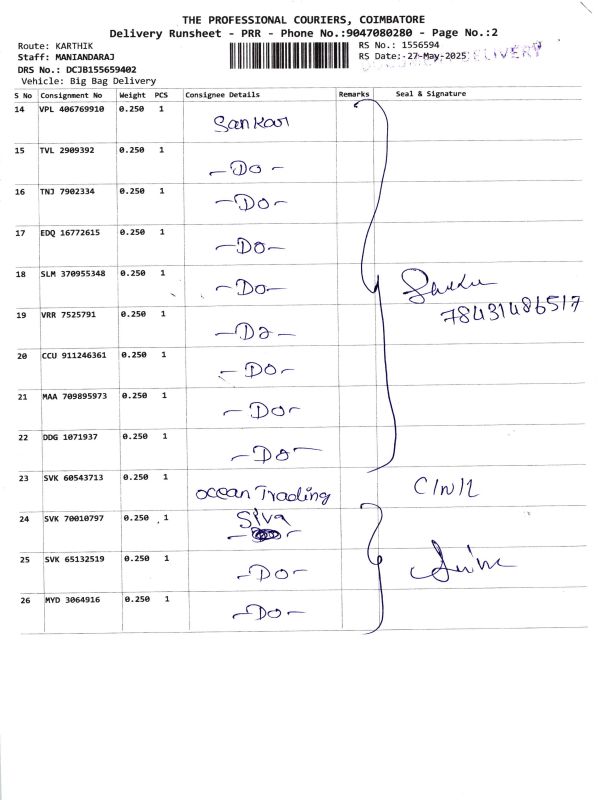 THE PROFESSIONAL COURIERS, COIMBATORE
Delivery Runsheet - PRR - Phone No.:9047080280 - Page No.:2
Route: KARTHIK
RS No.: 1556594
Staff: MANIANDARAJ
RS Date: 27-May-2025 DELIVERY
DRS No.: DCJB155659402
Vehicle: Big Bag Delivery
S No Consignment No Weight PCS Consignee Details Remarks Seal & Signature
14 VPL 406769910 0.250 1 Sankar
15 TVL 2909392 0.250 1 -Do-
16 TNJ 7902334 0.250 1 -Do-
17 EDQ 16772615 0.250 1 -Do-
18 SLM 370955348 0.250 1 -Do-
19 VRR 7525791 0.250 1 -Do-
78431486517
20 CCU 911246361 0.250 1 -Do-
21 MAA 709895973 0.250 1 -Do-
22 DDG 1071937 0.250 1 -Do-
23 SVK 60543713 0.250 1 ocean Trading
24 SVK 70010797 0.250 1 Siva
25 SVK 65132519 0.250 1 -Do-
26 MYD 3064916 0.250 1 -Do-